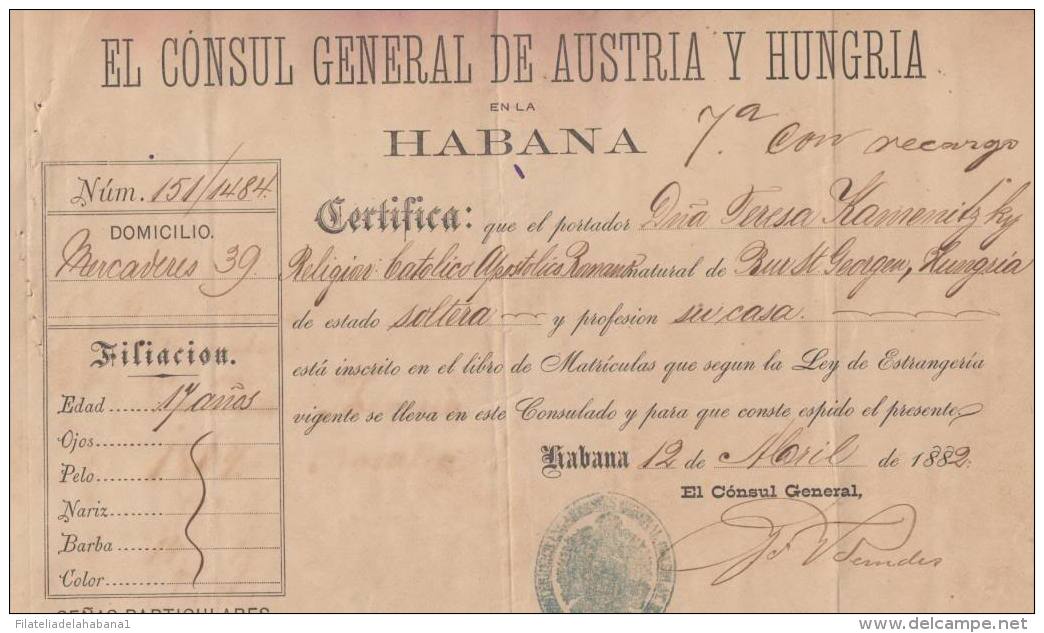 EL CÓNSUL GENERAL DE AUSTRIA Y HUNGRIA
EN LA
HABANA
7ª con recargo
Núm. 151/1484.
DOMICILIO.
Mercaderes 39.
Filiacion.
Edad ...... 17 años
Ojos
Pelo
Nariz
Barba
Color
SEÑAS PARTICULARES
Certifica: que el portador Dña Teresa Kamenitzky
Religion Catolico Apostolico Romana natural de Bur St Georgen, Hungria
de estado soltera y profesion su casa.
está inscrito en el libro de Matrículas que segun la Ley de Estrangería
vigente se lleva en este Consulado y para que conste espido el presente
Habana 12 de Abril de 1882.
El Cónsul General,
Filateliadelahabana1
www.delcampe.net